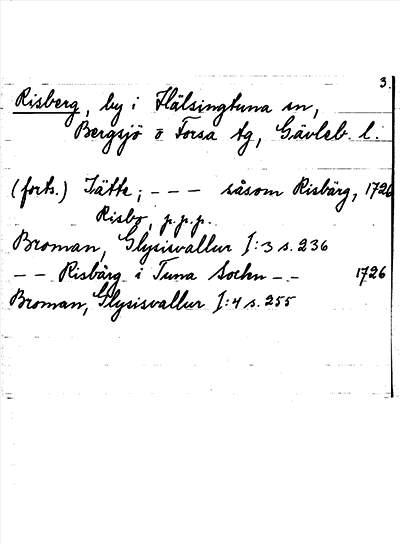 3.
Risberg, by i Hälsingtuna sn,
Bergsjö o Forsa tg, Gävleb. l.
(forts.) Sätte; - - - såsom Risbärg, 1726
Risbo, p.p.p.
Broman, Glysisvallur I:3 s. 236
- - Risbärg i Tuna Sochn - - 1726
Broman, Glysisvallur I:4 s. 255